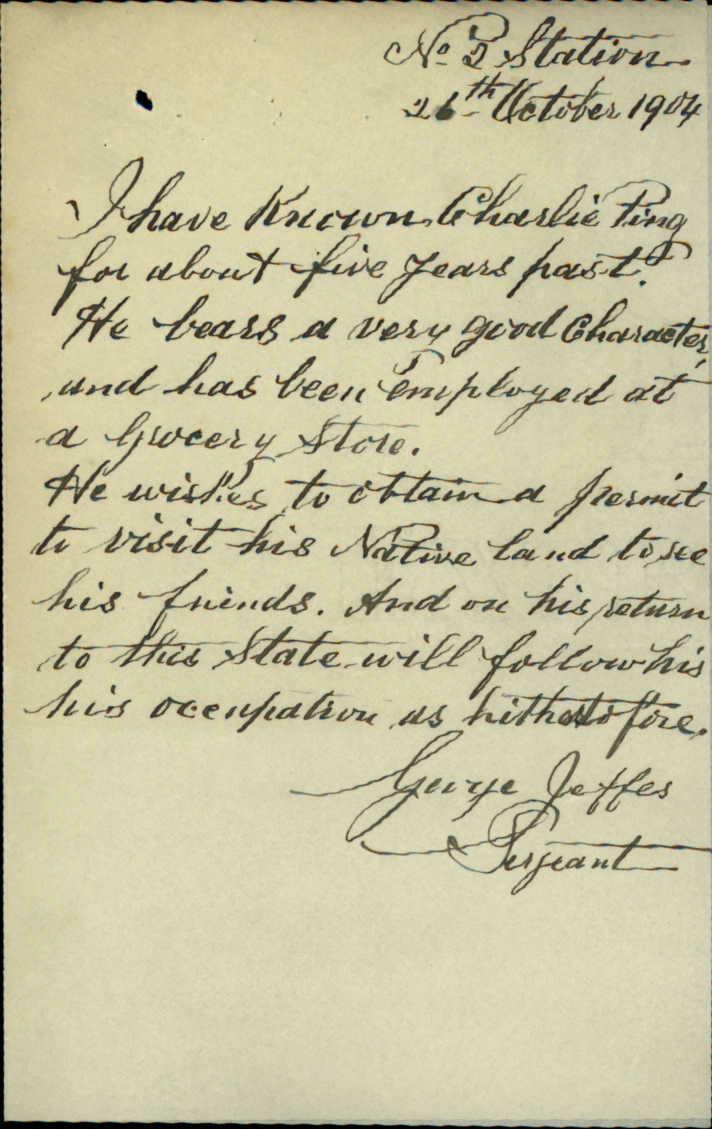 No. 2 Station
26th October 1904
I have Known Charlie Ping
for about five years past.
He bears a very good Character,
and has been Employed at
a Grocery Store.
He wishes to obtain a permit
to visit his Native land to see
his friends. And on his return
to this State will follow his
his occupation as hithertofore.
George Jeffes
Sergeant